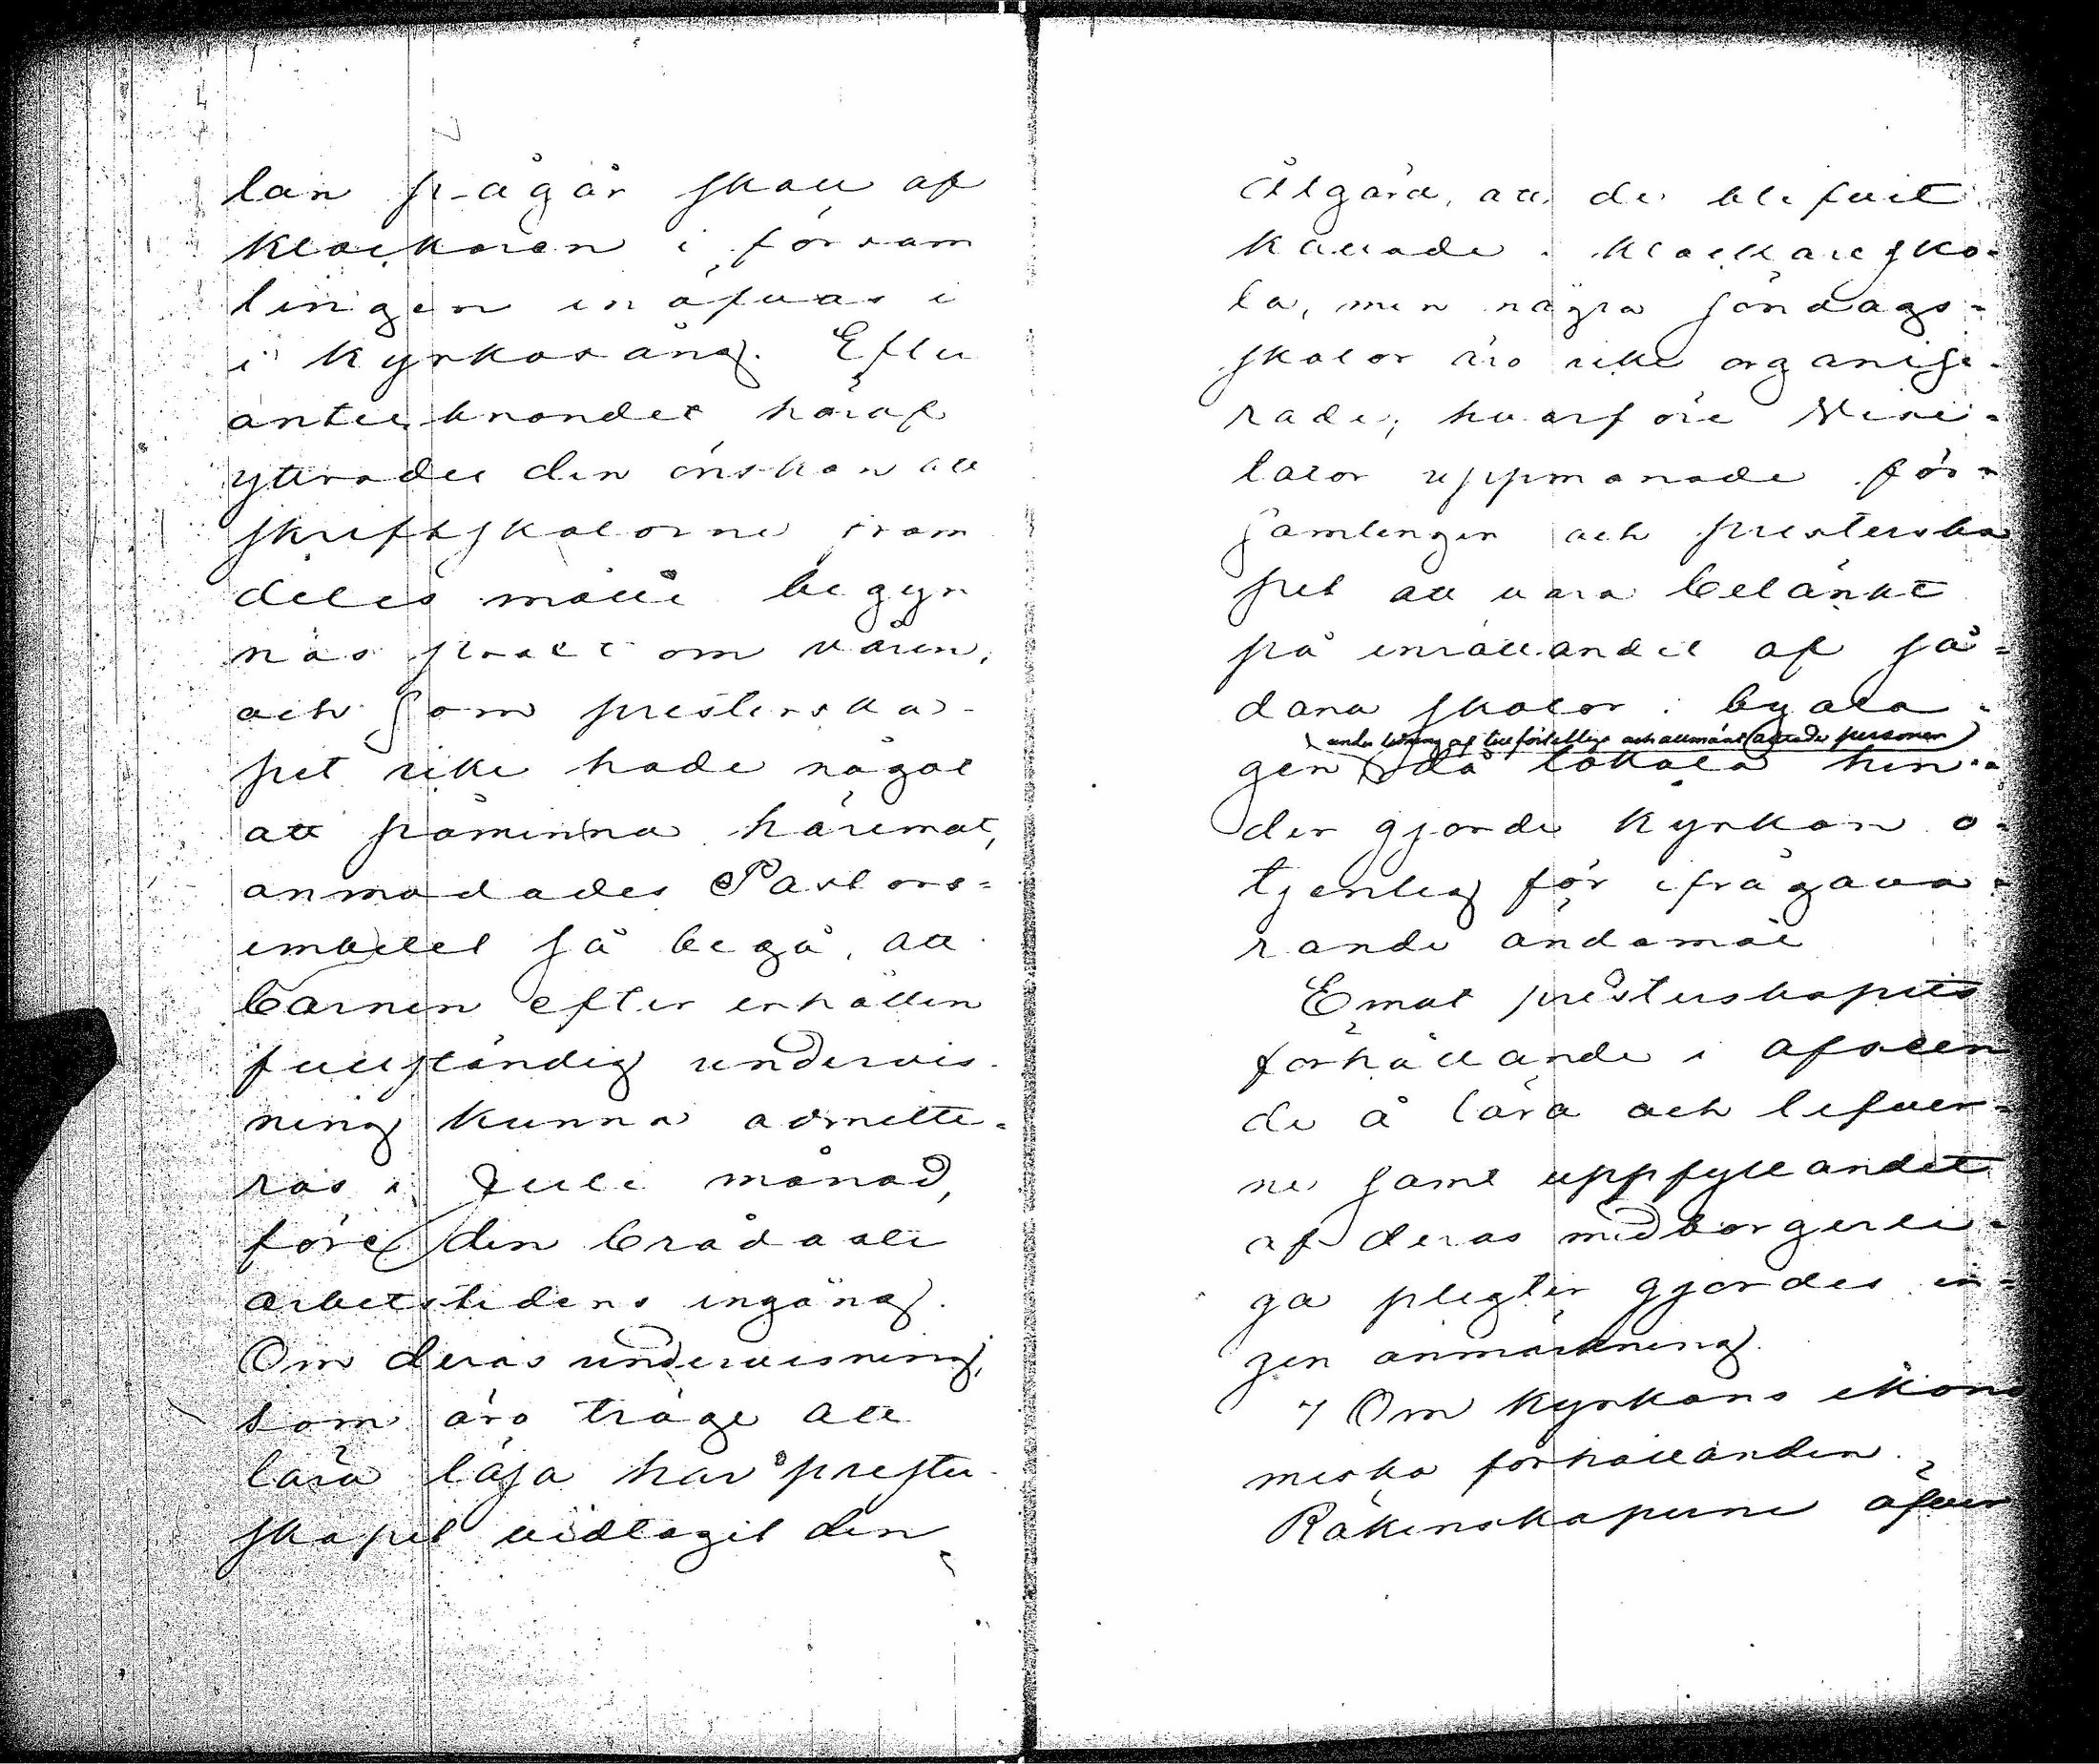 lan pågår skall af
klockaren i försam
lingen inöfvas i
i kyrkosång. Efter
antecknandet häraf
yttrades den önskan att
skriftskolorne fram
deles måtte begyn
nas straxt om våren,
och som presterska-
pet icke hade något
att påminna häremot,
anmodades Pastors=
embetet så begå, att
barnen efter erhållen
fullständig undervis-
ning kunna admitte-
ras i Juli månad,
före den brådaste
arbetstidens ingång.
Om deras undervisning,
som äro tröge att
lära läsa har prester-
skapet vidtagit den
åtgärd, att de blifvit
kallade i klockaresko-
la, men några söndags-
skolor äro icke organise-
rade; hvarföre Visi-
tator uppmanade för-
samlingen och presterska
pet att vara betänkt
på inrättandet af så=
dana skolor i byala-
under ledning af tillförlitlige och allmänt aktade personer
gen, då lokala hin-
der gjorde kyrkan o-
tjenlig för ifrågava-
rande ändamål
Emot presterskapets
förhållande i afseen
de å lära och lefver-
ne samt uppfyllandet
af deras medborgerli-
ga pligter gjordes in-
gen anmärkning.
7 Om kyrkans ekono
miska förhållanden.
Räkenskaperne öfver